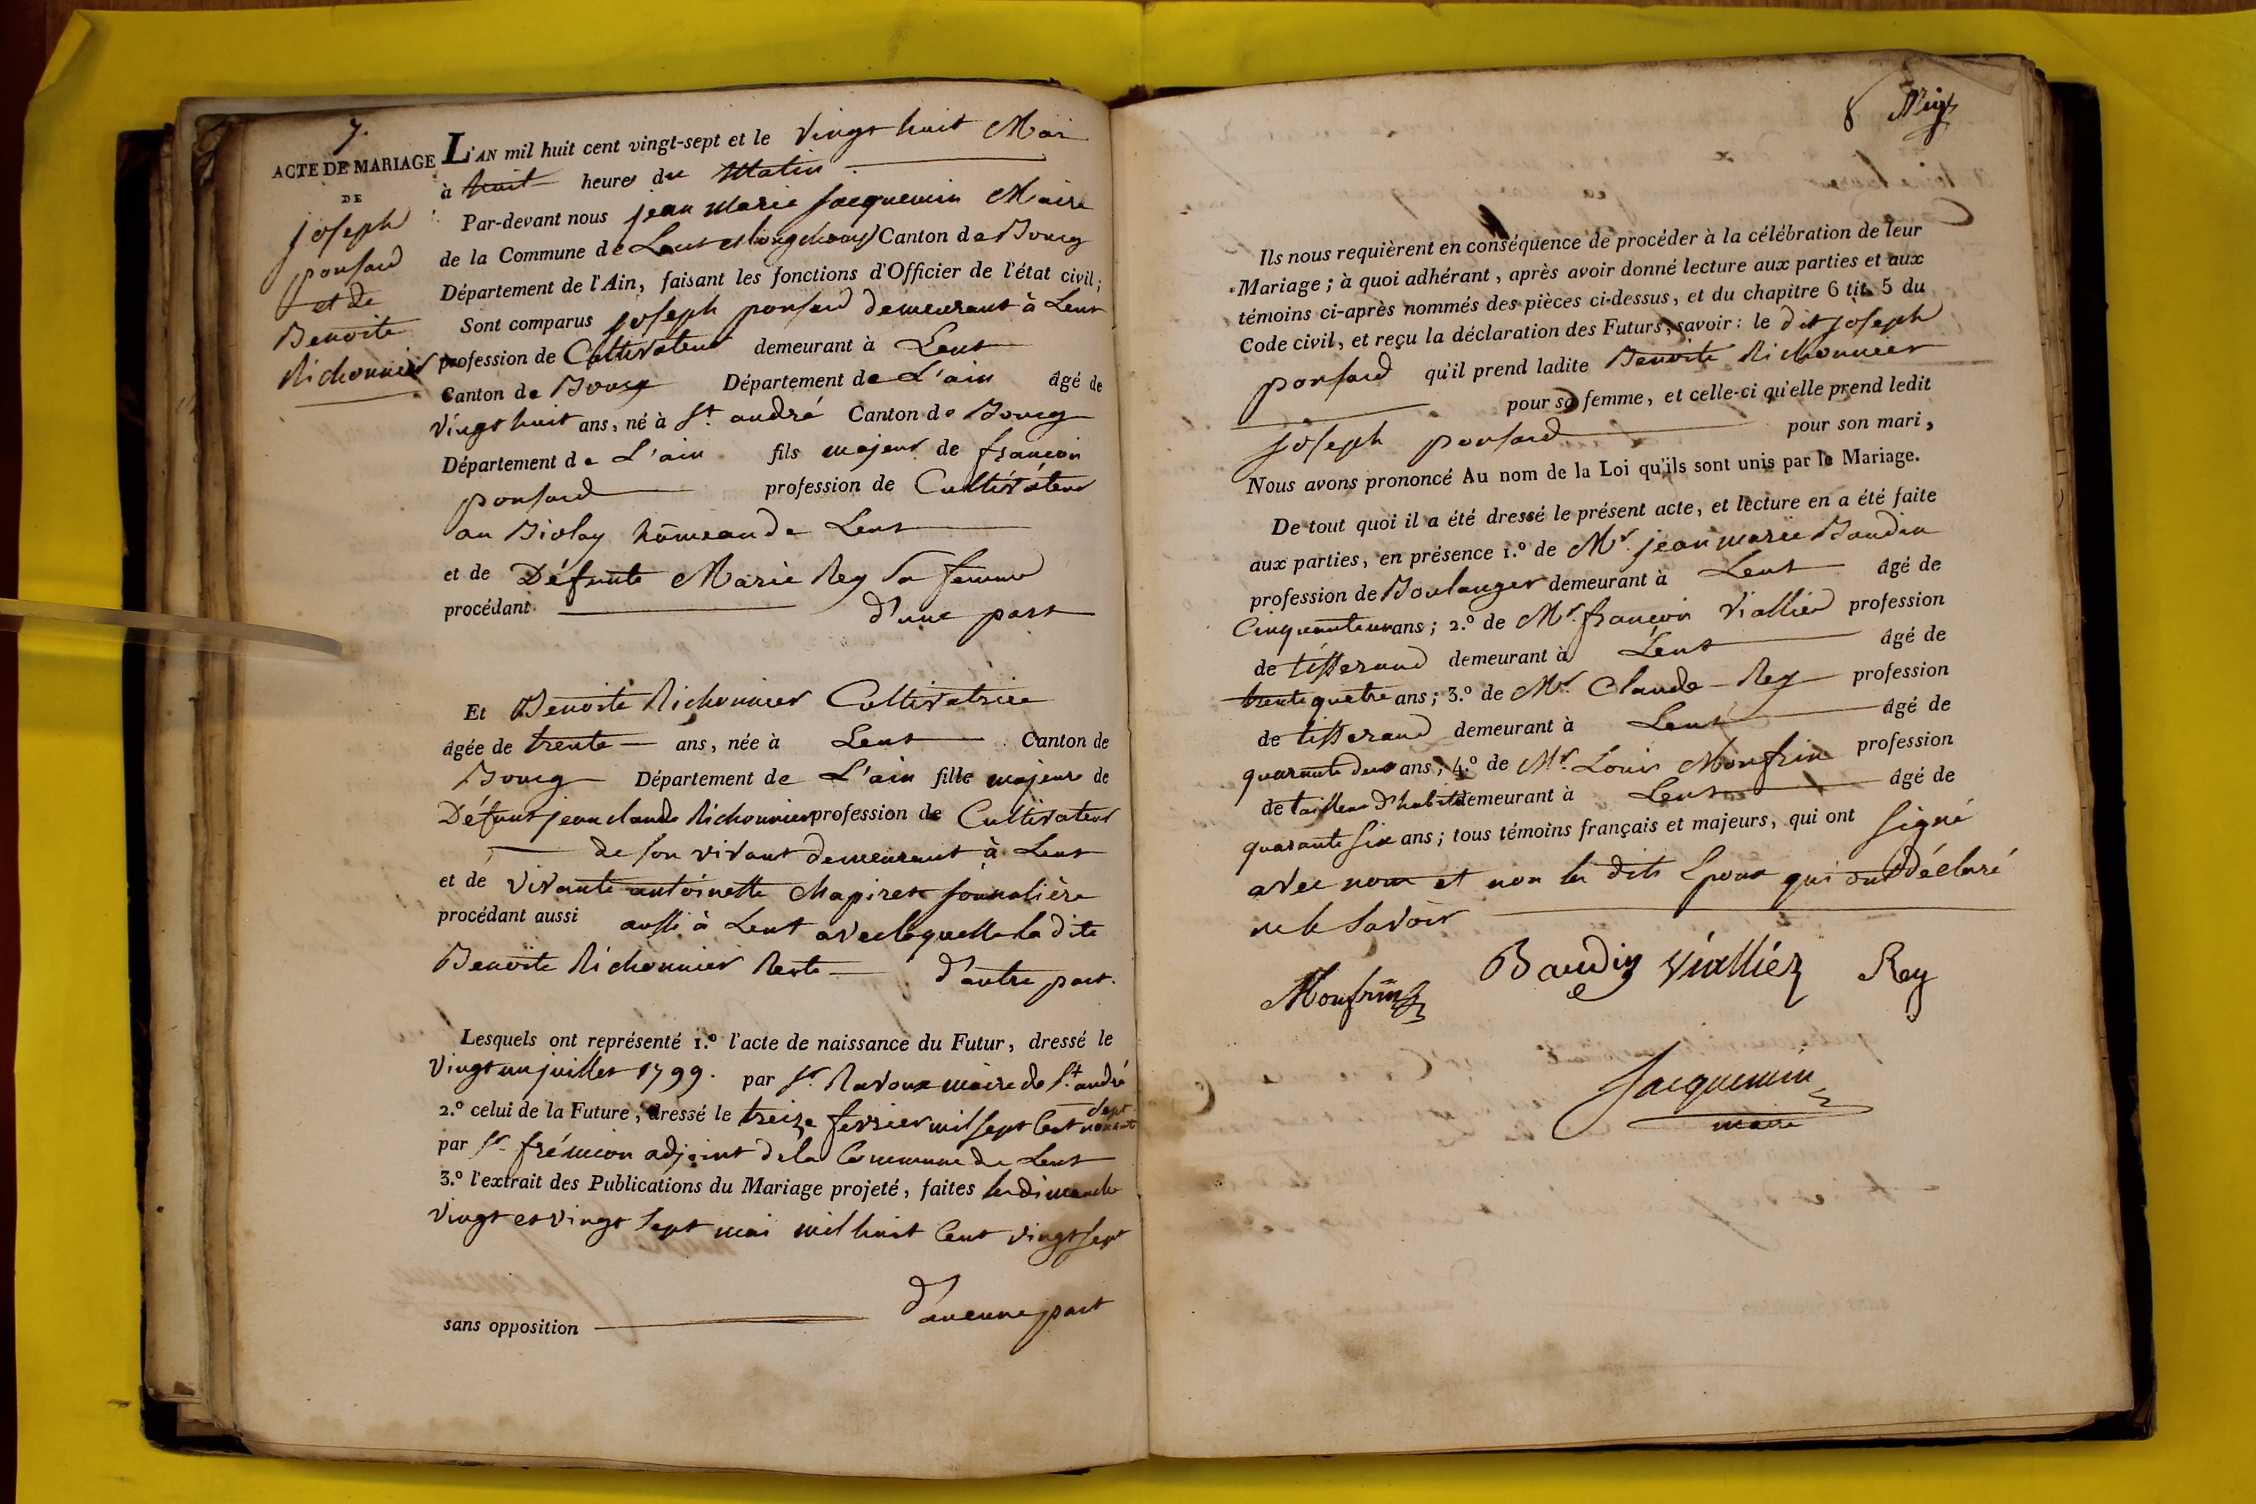 7.
ACTE DE MARIAGE
DE
joseph
ponsard
et de
Benoite
Richonnier
L'AN mil huit cent vingt-sept et le vingt huit Mai
à huit heures du Matin
Par-devant nous jean Marie Jacquemin Maire
de la Commune de Lent et longchamp Canton de Bourg
Département de l'Ain, faisant les fonctions d'Officier de l'état civil;
Sont comparus joseph ponsard demeurant à Lent
profession de Cultivateur demeurant à Lent
Canton de Bourg Département de L'ain âgé de
vingt huit ans, né à St. andré Canton de Bourg
Département de L'ain fils majeur de françois
ponsard profession de Cultivateur
au Biolay hameau de Lent
et de Défunte Marie Rey sa femme
procédant d'une part
Et Benoite Richonnier Cultivatrice
âgée de trente ans, née à Lent Canton de
Bourg Département de L'ain fille majeure de
Défunt jean claude Richonnier profession de Cultivateur
de son vivant demeurant à Lent
et de vivante antoinette Chapiret journalière
procédant aussi aussi à Lent avec laquelle la dite
Benoite Richonnier Reste d'autre part.
Lesquels ont représenté 1.º l'acte de naissance du Futur, dressé le
vingt un juillet 1799. par Sr. Ravoux maire de St. andré
2.º celui de la Future, dressé le treize fevrier mil sept Cent nonante sept
par Sr. frémion adjoint de la Commune de Lent
3.º l'extrait des Publications du Mariage projeté, faites les dimanche
vingt et vingt sept mai mil huit Cent vingt sept
sans opposition d'aucune part
8
Ils nous requièrent en conséquence de procéder à la célébration de leur
Mariage; à quoi adhérant, après avoir donné lecture aux parties et aux
témoins ci-après nommés des pièces ci-dessus, et du chapitre 6 tit. 5 du
Code civil, et reçu la déclaration des Futurs, savoir: le dit joseph
ponsard qu'il prend ladite Benoite Richonnier
pour sa femme, et celle-ci qu'elle prend ledit
joseph ponsard pour son mari,
Nous avons prononcé Au nom de la Loi qu'ils sont unis par le Mariage.
De tout quoi il a été dressé le présent acte, et lecture en a été faite
aux parties, en présence 1.º de Mr. jean marie Baudin
profession de Boulanger demeurant à Lent âgé de
Cinquante un ans; 2.º de Mr. françois Viallier profession
de tisserand demeurant à Lent âgé de
trente quatre ans; 3.º de Mr. Claude Rey profession
de tisserand demeurant à Lent âgé de
quarante deux ans; 4.º de Mr. Louis Monfrin profession
de tailleur d'habits demeurant à Lent âgé de
quarante six ans; tous témoins français et majeurs, qui ont signé
avec nous et non les dits Epoux qui ont déclaré
ne le savoir
Baudin Viallier Rey
Monfrin
Jacquemin
maire